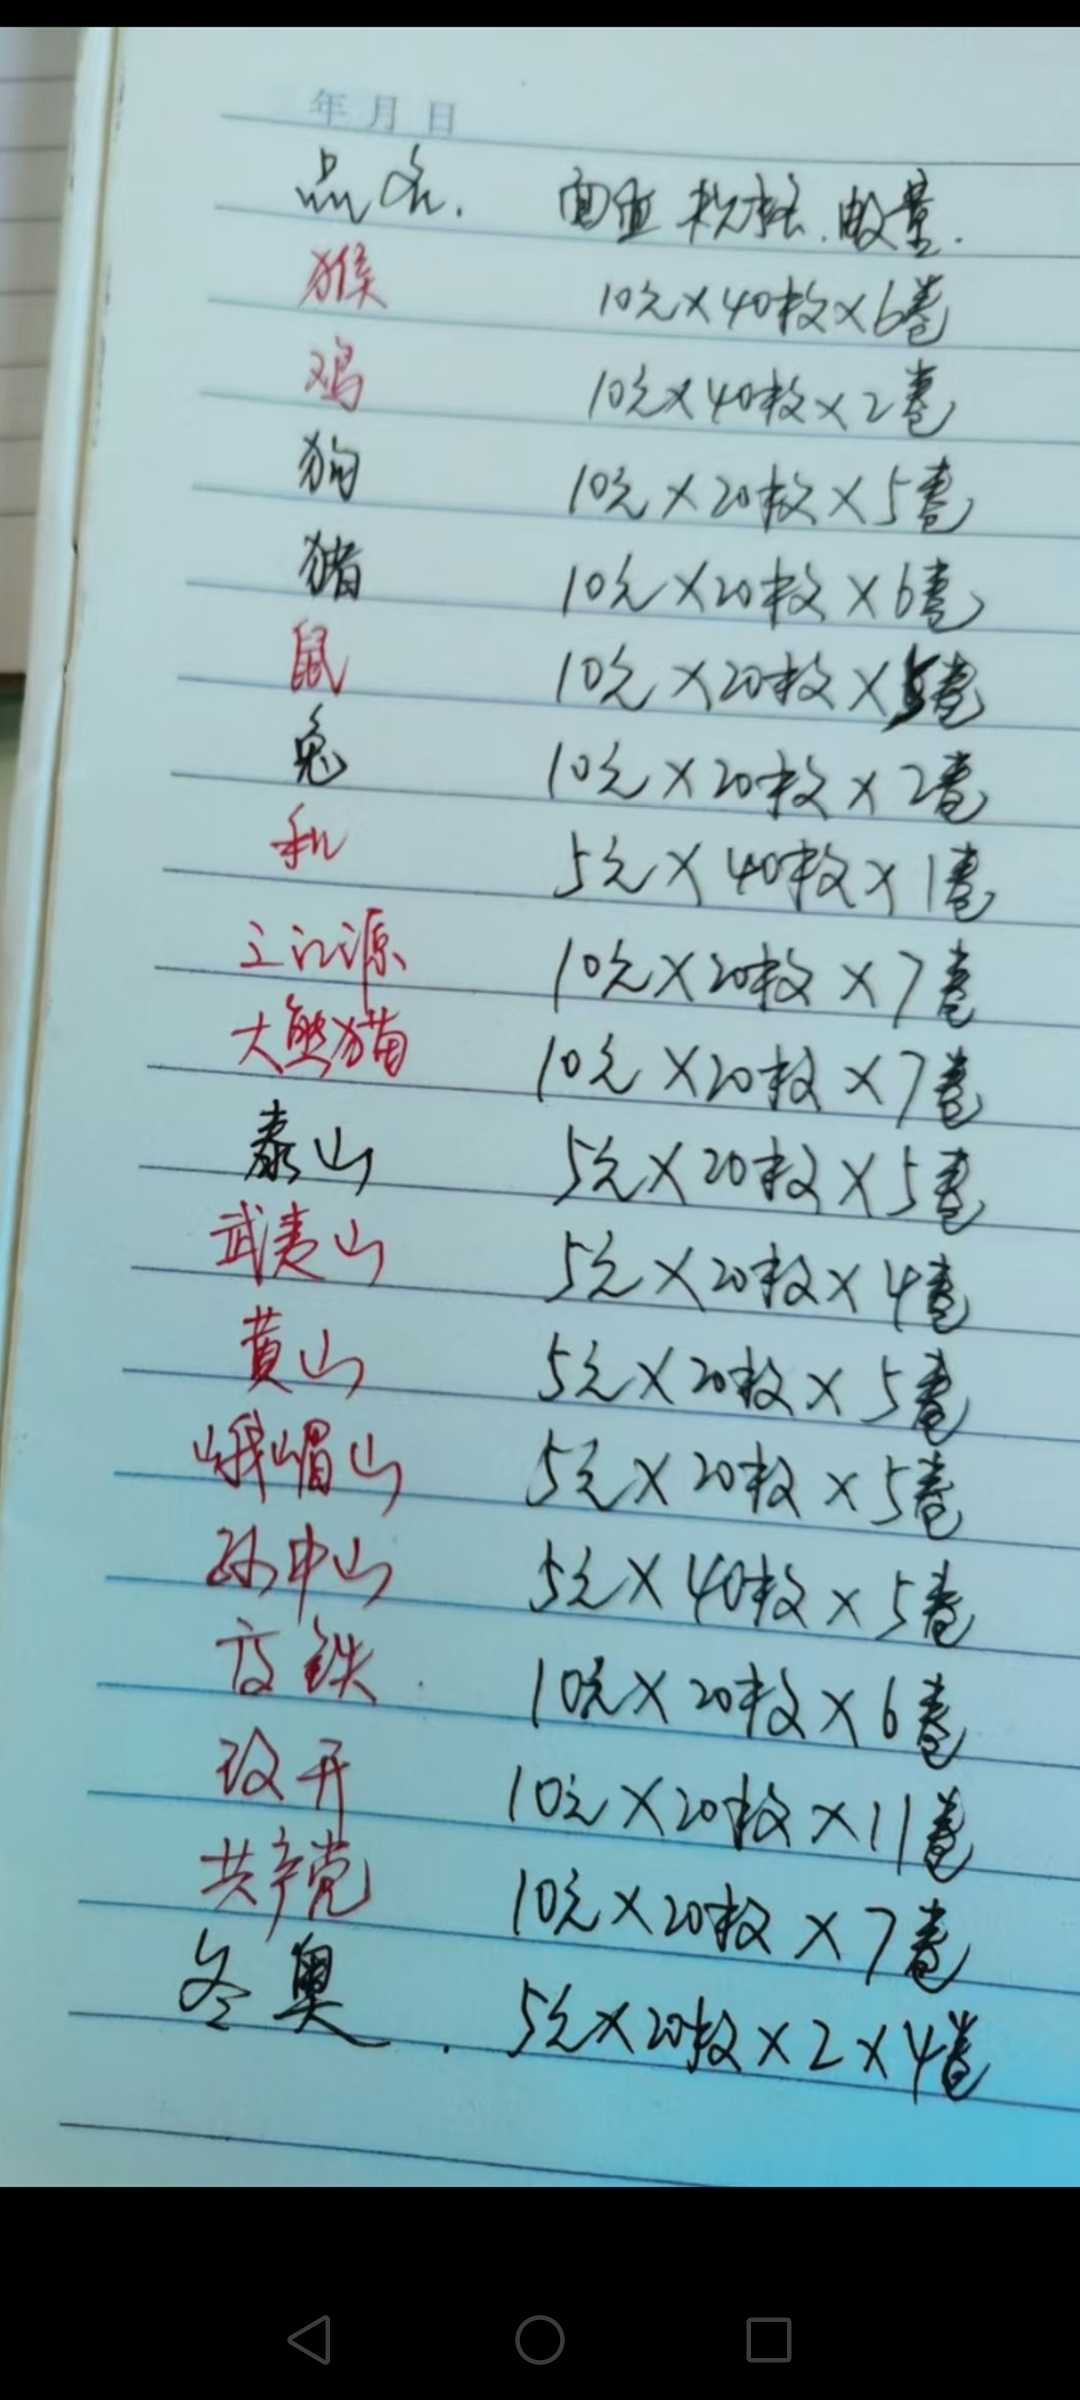 年 月 日
品名. 面值 枚数. 数量.
猴 10元×40枚×6卷
鸡 10元×40枚×2卷
狗 10元×20枚×5卷
猪 10元×20枚×6卷
鼠 10元×20枚×5卷
兔 10元×20枚×2卷
和 5元×40枚×1卷
三江源 10元×20枚×7卷
大熊猫 10元×20枚×7卷
泰山 5元×20枚×5卷
武夷山 5元×20枚×4卷
黄山 5元×20枚×5卷
峨嵋山 5元×20枚×5卷
孙中山 5元×40枚×5卷
高铁. 10元×20枚×6卷
改开 10元×20枚×11卷
共产党 10元×20枚×7卷
冬奥. 5元×20枚×2×4卷